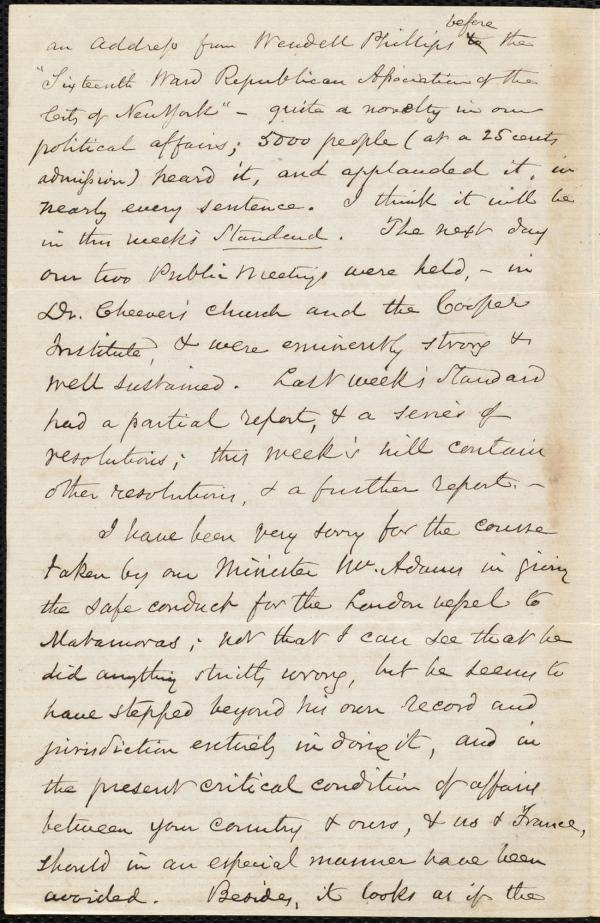 before
an address from Wendell Phillips to the
"Sixteenth Ward Republican Association of the
City of New York" – quite a novelty in our
political affairs; 5000 people (at a 25 cents
admission) heard it, and applauded it, in
nearly every sentence. I think it will be
in this week's Standard. The next day
our two Public Meetings were held, – in
Dr. Cheever's church and the Cooper
Institute, & were eminently strong &
well sustained. Last week's Standard
had a partial report, & a series of
resolutions; this week's will contain
other resolutions, & a further report. –
I have been very sorry for the course
taken by our Minister Mr. Adams in giving
the safe conduct for the London vessel to
Matamoras; not that I can see that he
did anything strictly wrong, but he seems to
have stepped beyond his own record and
jurisdiction entirely in doing it, and in
the present critical condition of affairs
between your country & ours, & us & France,
should in an especial manner have been
avoided. Besides, it looks as if the